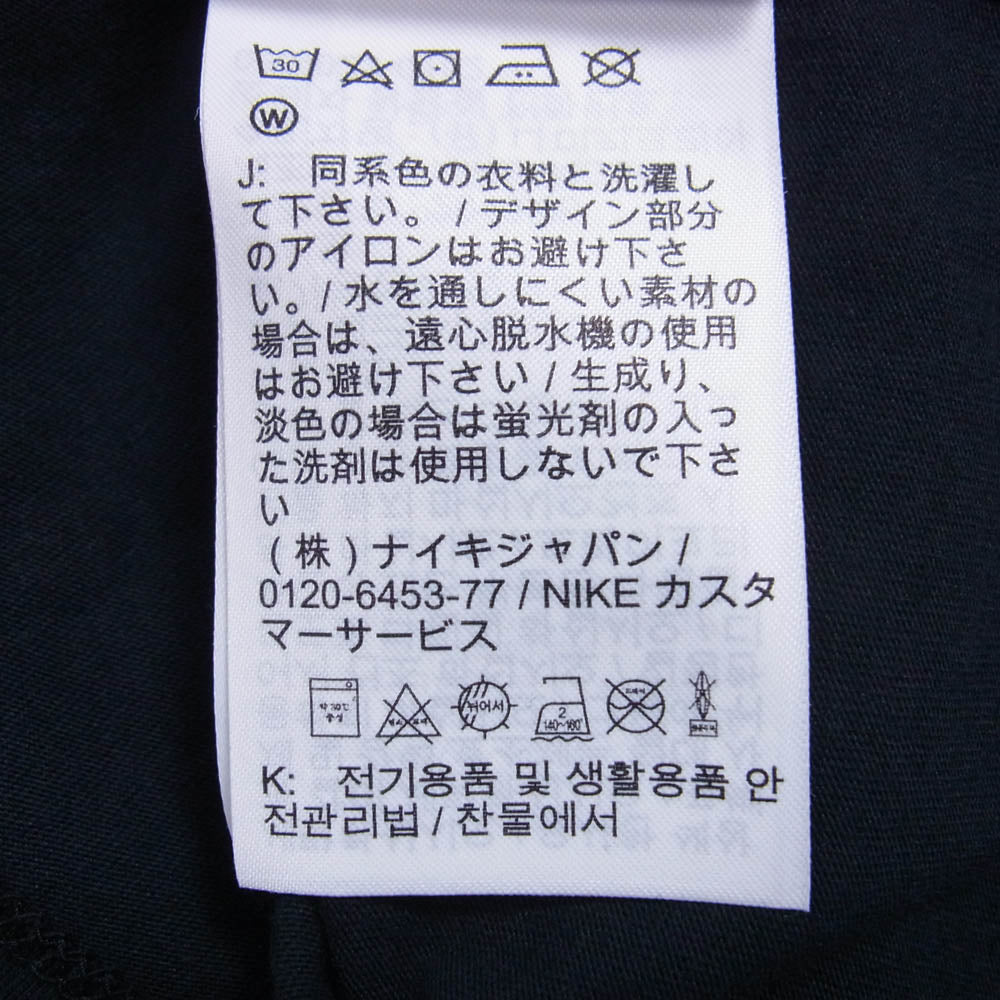 30
W
J: 同系色の衣料と洗濯し
て下さい。 / デザイン部分
のアイロンはお避け下さ
い。/ 水を通しにくい素材の
場合は、遠心脱水機の使用
はお避け下さい / 生成り、
淡色の場合は蛍光剤の入っ
た洗剤は使用しないで下さ
い
(株) ナイキジャパン /
0120-6453-77 / NIKE カスタ
マーサービス
약30℃
중성
뉘어서
2
140~160℃
드라이
K: 전기용품 및 생활용품 안
전관리법 / 찬물에서